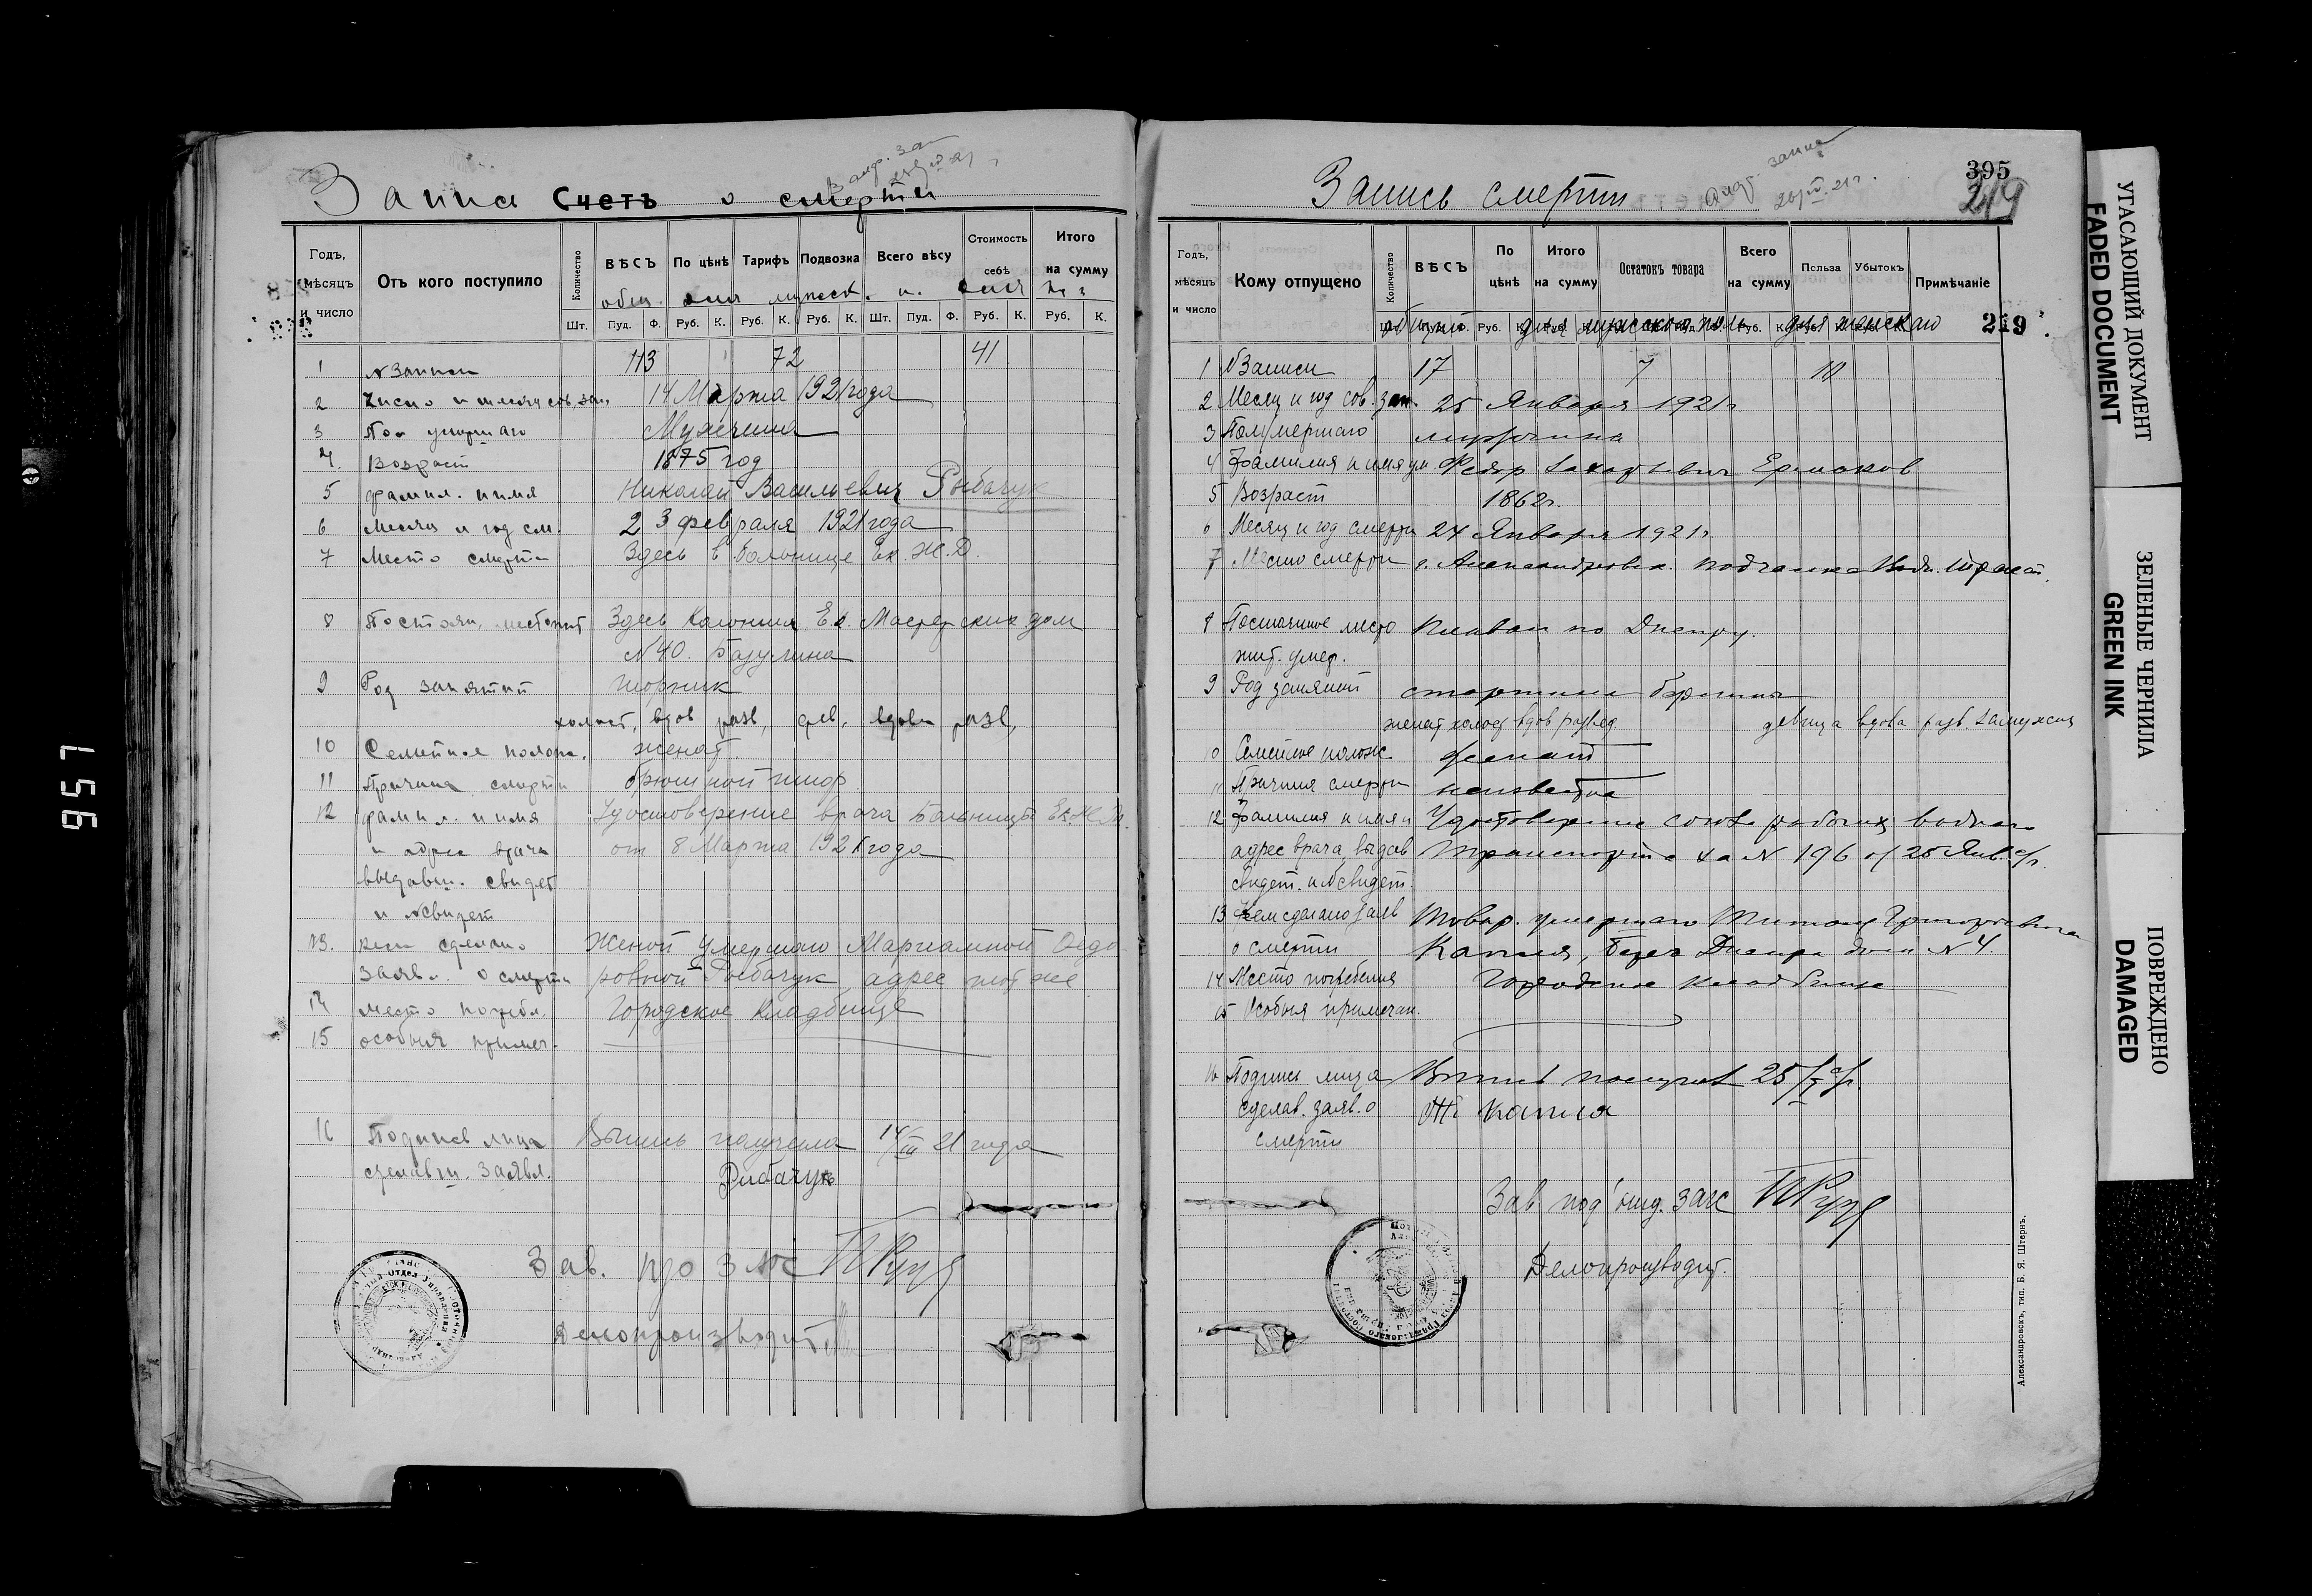 957
Запись Счетъ о смерти
Годъ, мѣсяцъ и число
Отъ кого поступило
Количество
ВѢСЪ
По цѣнѣ
Тарифъ
Подвозка
Всего вѣсу
Стоимость себѣ
Итого на сумму
общ. для мужеск. п. для
Шт. Пуд. Ф. Руб. К. Руб. К. Руб. К. Шт. Пуд. Ф. Руб. К. Руб. К.
1 № записи 113 72 41
2 Число и месяц сов. зап. 14 Марта 1921 года
3 Пол умершаго Мужчина
4. Возраст 1875 год
5 фамил. и имя Николай Васильевич Рыбачук
6 Месяц и год см. 23 февраля 1921 года
7 Место смерти Здесь в Больнице Ек. Ж. Д.
8 Постоян. мест. жит Здесь Колония Ек Мастерских дом
№ 40. Базулина
9 Род занятий
холост, вдов разв, дев, вдова разв,
10 Семейное полож. женат
11 Причина смерти брюшной тиф
12 фамил. и имя Удостоверение врача Больницы Ек. Ж. Д.
и адрес врача от 8 Марта 1921 года
выдавш. свидет
и № свидет
13. кем сделано Женой умершаго Марианной Федо
заявл. о смерти ровной Рыбачук адрес тот же
14 место погребл. Городское Кладбище
15 особыя примеч.
16 Подпись лица Выпись получила 14/III 21 года
сделавш. заявл. Рибачук
Зав. п/о Загс
Делопроизводит.
Запись смерти
395
219
Годъ, мѣсяцъ и число
Кому отпущено
Количество
ВѢСЪ
По цѣнѣ
Итого на сумму
Остатокъ товара
Всего на сумму
Польза
Убытокъ
Примѣчаніе
общий для мужского пола для женскаго 219
1 № Записи 17 7 10
2 Месяц и год сов. зап. 25 Января 1921 г
3 Пол умершаго мужчина
4 Фамилия и имя ум Федор Захарьевич Ермаков
5 Возраст 1862 г.
6 Месяц и год смерти 24 Января 1921 г.
7 Место смерти г. Александровск.
8 Постоянное место Плавал по Днепру.
жит. умер.
9 Род занятий старшина баржи
женат холост вдов развед. девица вдова разв. замужем
10 Семейное полож женат
11 Причина смерти неизвестна
12 Фамилия и имя и Удостоверение союза рабочих водного
адрес врача выдав транспорта за № 196 от 25 Янв. с/г.
свидет. и № свидет.
13 Кем сделано заяв Товар. умершаго Григорьевича
о смерти Капля, берег Днепра дом № 4.
14 Место погребения Городское кладбище
15 Особыя примечан.
16 Подпись лица Выпись получил 25/I с/г.
сделав. заяв. о Капля
смерти
Зав под'отд. Загс
Делопроизводит.
Александровскъ, тип. Б. Я. Штернъ.
УГАСАЮЩИЙ ДОКУМЕНТ
FADED DOCUMENT
ЗЕЛЕНЫЕ ЧЕРНИЛА
GREEN INK
ПОВРЕЖДЕНО
DAMAGED